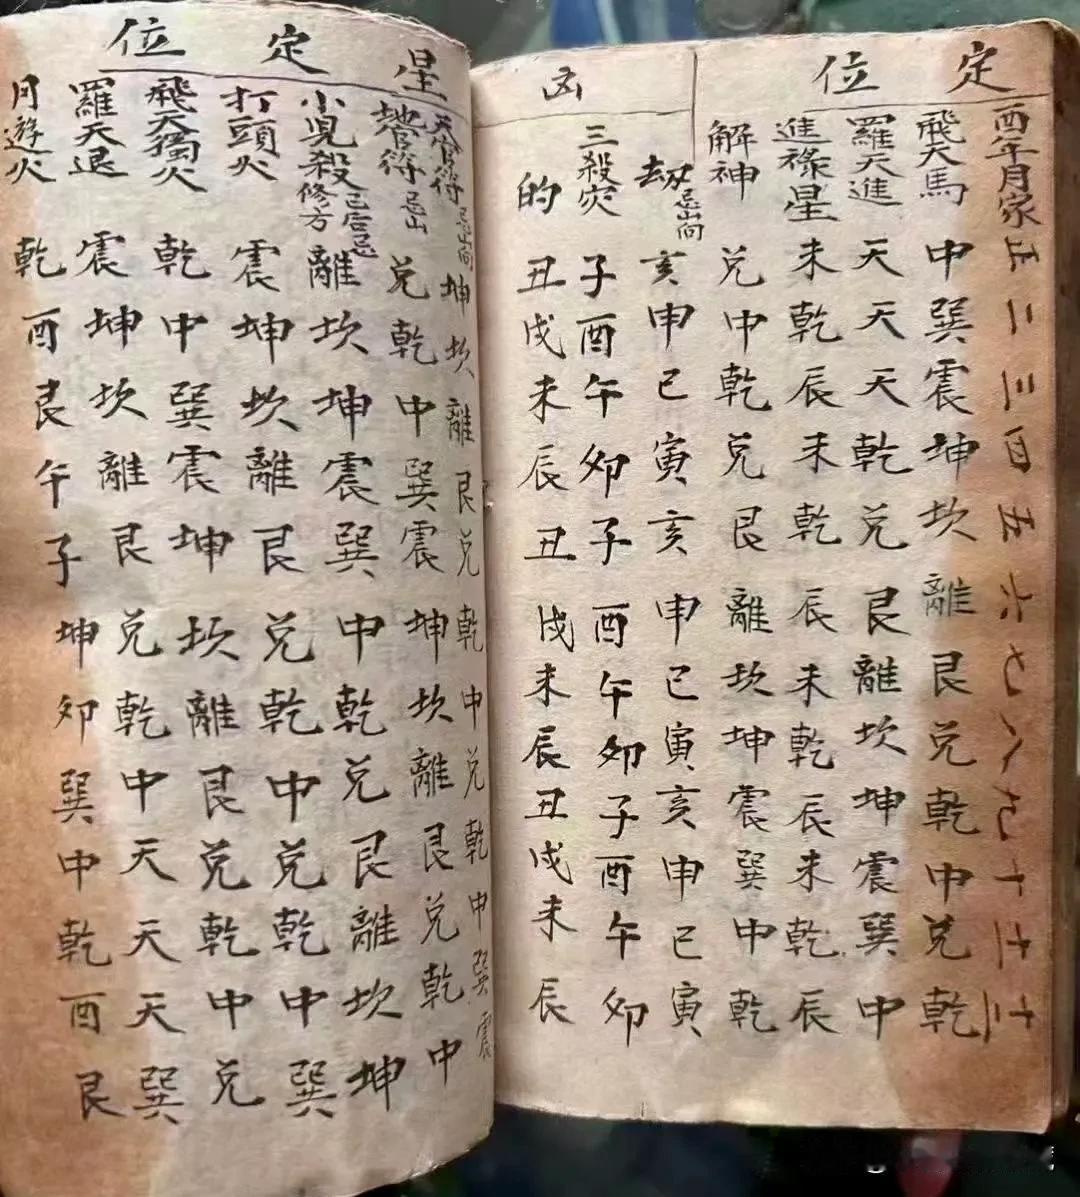 定位
酉年月家正二三四五六七八九十十一十二
飛天馬中巽震坤坎離艮兌乾中兌乾
羅天進天天天乾兌艮離坎坤震巽中
進祿星未乾辰未乾辰未乾辰未乾辰
解神兌中乾兌艮離坎坤震巽中乾
凶
劫忌山向亥申巳寅亥申巳寅亥申巳寅
三殺災子酉午卯子酉午卯子酉午卯
的丑戌未辰丑戌未辰丑戌未辰
星定位
天官符忌山向坤坎離艮兌乾中兌乾中巽震
地官符忌山兌乾中巽震坤坎離艮兌乾中
小兒殺忌修方離坎坤震巽中乾兌艮離坎坤
打頭火震坤坎離艮兌乾中兌乾中巽
飛天獨火乾中巽震坤坎離艮兌乾中兌
羅天退震坤坎離艮兌乾中天天天巽
月遊火乾酉艮午子坤卯巽中乾酉艮